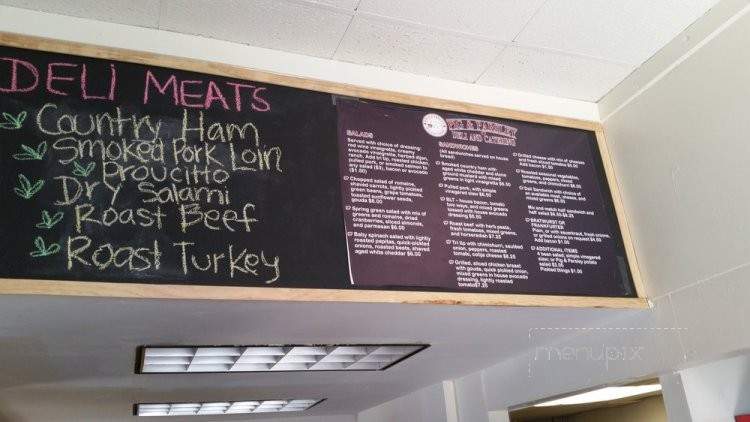 DELI MEATS
Country Ham
Smoked Pork Loin
Proucitto
Dry Salami
Roast Beef
Roast Turkey
PIG & PARSLEY
DELI AND CATERING
SALADS
Served with choice of dressing:
red wine vinegrette, creamy
ranch, Add in tip, roasted chicken,
pulled pork, or smoked salmon to
any salad ($3), bacon or avocado
($1.00)
Chopped salad of romaine,
shaved carrots, lightly pickled
green beans, grape tomatoes,
toasted sunflower seeds,
gouda $6.00
Spring green salad with mix of
greens and romaine, dried
cranberries, sliced almonds,
and parmesan $6.00
Baby spinach salad with lightly
roasted pepitas, quick-pickled
onions, roasted beets, shaved
aged white cheddar $6.00
SANDWICHES
(All sandwiches served on house
bread)
Smoked country ham with
aged white cheddar and
greens mixed
in light vinegrette
Pulled pork, with simple
vinegared slaw
BLT - house bacon, tomato
two ways, and mixed greens
tossed with house avocado
dressing
Roast beef with herb pasta,
fresh tomatoes, mixed greens,
and horseradish $7.25
Tri tip with chimichurri, sautéed
onion, peppers, roasted
tomato, cotija cheese $6.25
Grilled, sliced chicken breast
with gouda, quick pickled onion,
mixed greens in house avocado
dressing, lightly roasted
tomato $7.25
Grilled cheese with mix of cheeses
and fresh sliced tomato
Add bacon $1.00
Roasted seasonal vegetables,
tomatoes, peppers, mixed
greens, and chimichurri $6.00
Deli Sandwich with choice of
an available meat, cheese, and
mixed greens $6.00
Mix and match half sandwich and
half salad
BRATWURST OR
FRANKFURTER
Plain, or with sauerkraut, fresh onions,
or grilled onions on request $4.00
Add bacon $1.00
ADDITIONAL ITEMS
4 bean salad, simple vinegared
slaw, or Pig & Parsley potato
salad $2.00
Pickled things $1.00
menupix